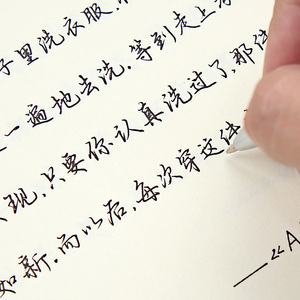 子里洗衣服,
一遍地去洗。等到走上
现,只要你认真洗过了,那
如新。而以后,每次穿这件
——《A